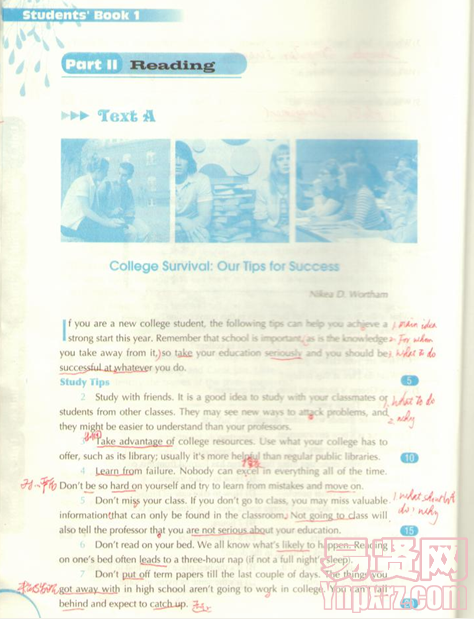 Students' Book 1
Part II Reading
Text A
College Survival: Our Tips for Success
Nikea D. Wortham
If you are a new college student, the following tips can help you achieve a 1. main idea
strong start this year. Remember that school is important, as is the knowledge
you take away from it, so take your education seriously and you should be 3. what to do
successful at whatever you do.
Study Tips 5
2 Study with friends. It is a good idea to study with your classmates or 1. what to do
students from other classes. They may see new ways to attack problems, and 2. why
they might be easier to understand than your professors.
Take advantage of college resources. Use what your college has to
offer, such as its library; usually it's more helpful than regular public libraries. 10
4 Learn from failure. Nobody can excel in everything all of the time.
Don't be so hard on yourself and try to learn from mistakes and move on.
5 Don't miss your class. If you don't go to class, you may miss valuable
information that can only be found in the classroom. Not going to class will
also tell the professor that you are not serious about your education. 15
6 Don't read on your bed. We all know what's likely to happen. Reading
on one's bed often leads to a three-hour nap (if not a full night's sleep).
7 Don't put off term papers till the last couple of days. The things you
got away with in high school aren't going to work in college. You can't fall
behind and expect to catch up.
易贤网
Ynpxrz.com